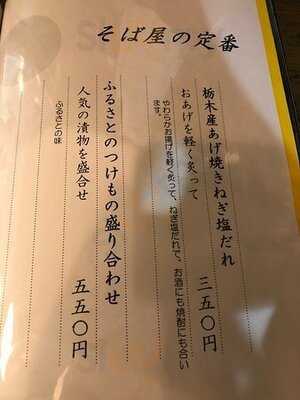 そば屋の定番
栃木産あげ焼きねぎ塩だれ 三五〇円
おあげを軽く炙って
やわらかお揚げを軽く炙って、ねぎ塩だれで、お酒にも焼酎にも合い
ます。
ふるさとのつけもの盛り合わせ 五五〇円
人気の漬物を盛合せ
ふるさとの味